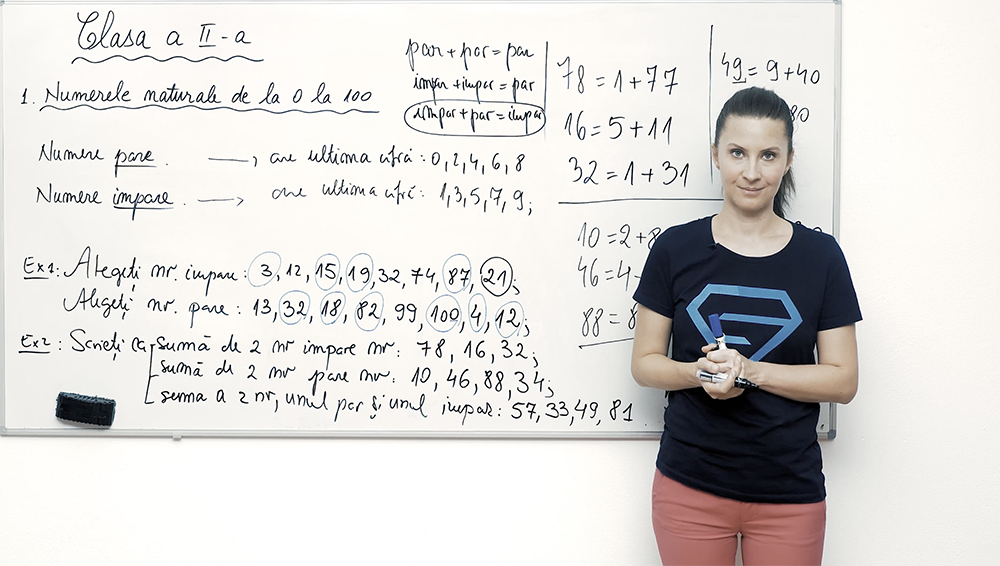 Clasa a II-a
1. Numerele naturale de la 0 la 100
par + par = par
impar + impar = par
impar + par = impar
Numere pare. → are ultima cifră: 0, 2, 4, 6, 8
Numere impare. → are ultima cifră: 1, 3, 5, 7, 9;
Ex1: Alegeți nr. impare: 3, 12, 15, 19, 32, 74, 87, 21;
Alegeți nr. pare: 13, 32, 18, 82, 99, 100, 4, 12;
Ex2: Scrieți ca sumă de 2 nr impare nr: 78, 16, 32;
sumă de 2 nr pare nr: 10, 46, 88, 34;
suma a 2 nr, unul par și unul impar: 57, 33, 49, 81
78 = 1 + 77
16 = 5 + 11
32 = 1 + 31
10 = 2 + 8
46 = 4
88 = 8
49 = 9 + 40
80